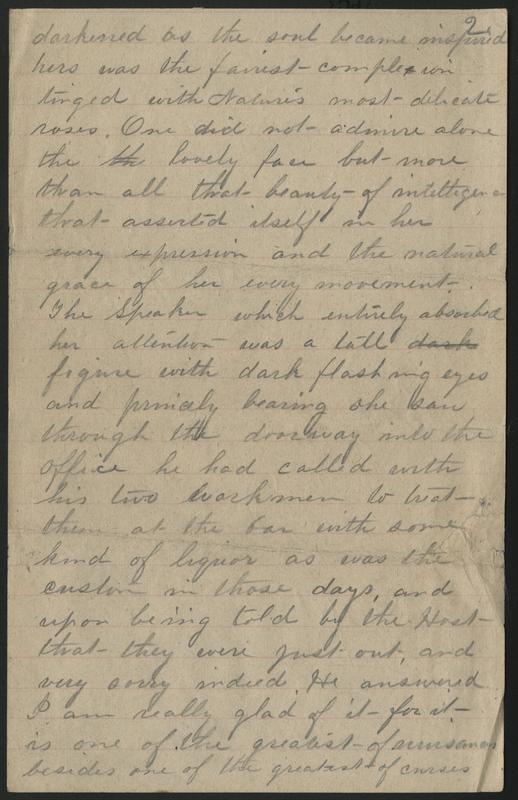 2
darkened as the soul became inspired
hers was the fairest complexion
tinged with Nature's most delicate
roses. One did not admire alone
the th lovely face but more
than all that beauty of intelligence
that asserted itself in her
every expression and the natural
grace of her every movement.
The Speaker which entirely absorbed
her attention was a tall dark
figure with dark flashing eyes
and princely bearing she saw
through the doorway into the
office he had called with
his two workmen to treat
them at the bar with some
kind of liquor as was the
custom in those days, and
upon being told by the Host
that they were just out, and
very sorry indeed. He answered
I am really glad of it for it
is one of the greatest of nuisances
besides one of the greatest of curses